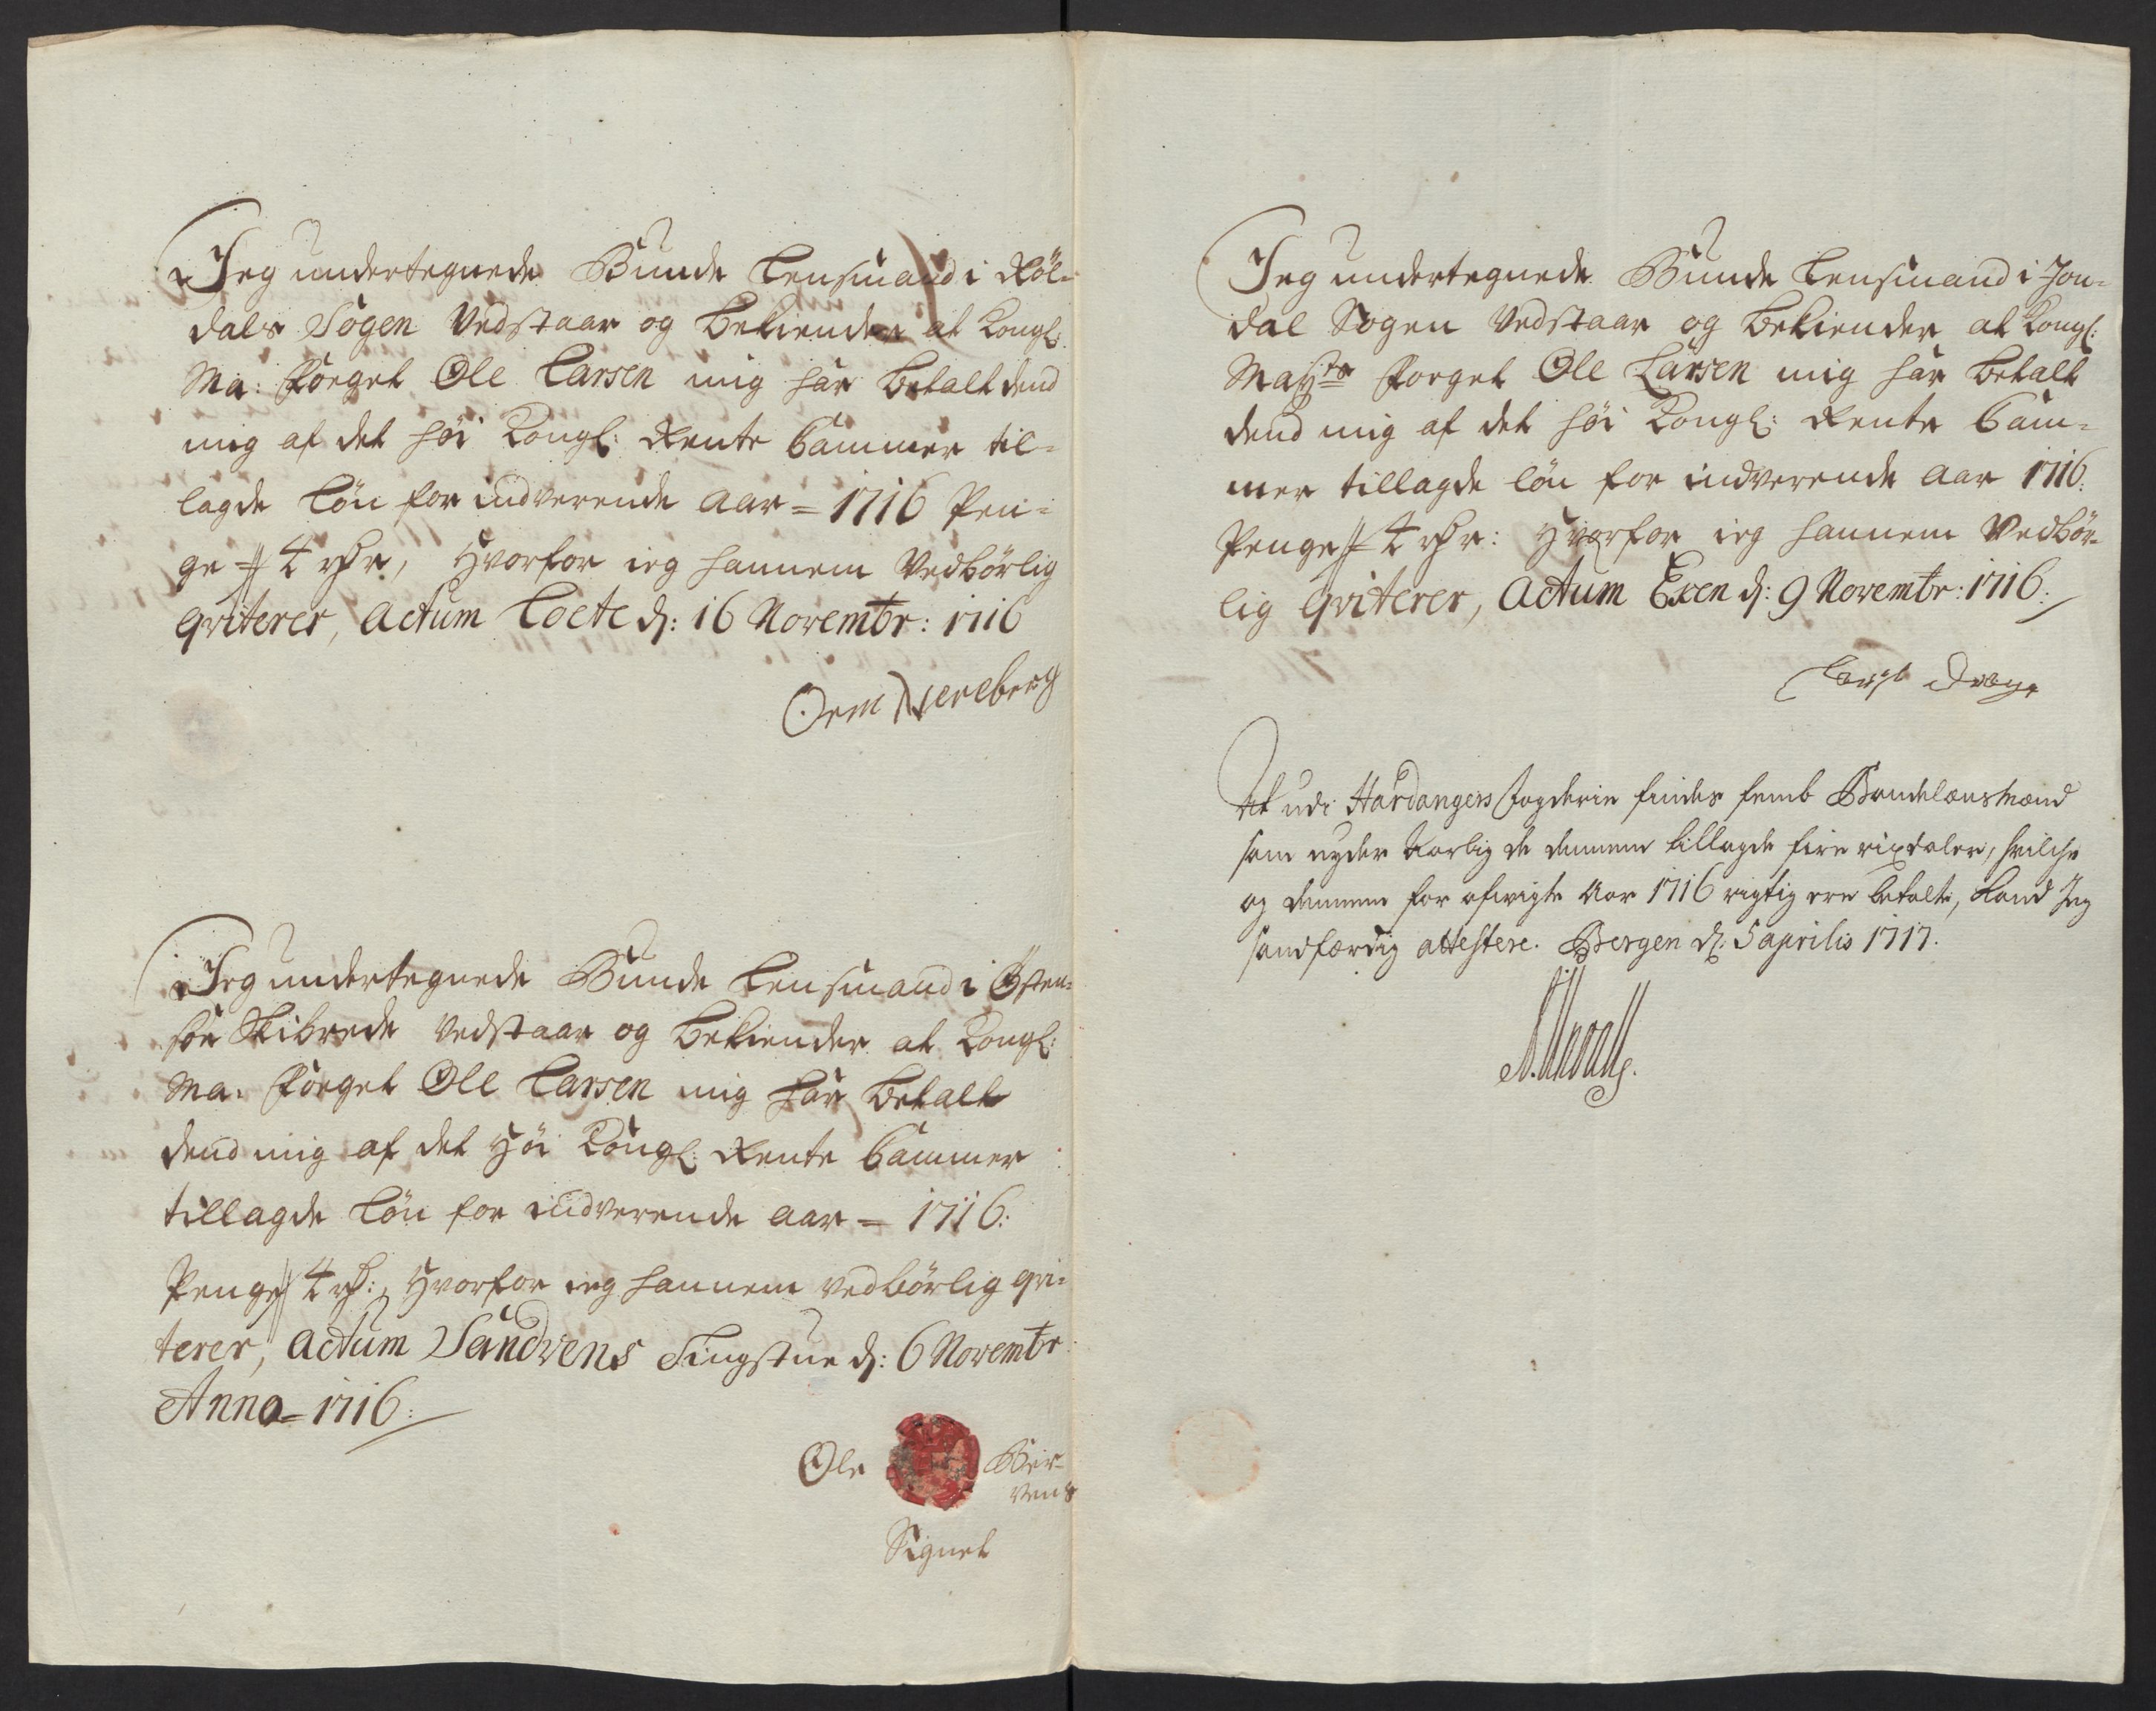 Jeg undertegnede Bunde Lensmand i Röl-
dals Sogen Vedstaar og bekiender at Kongl:
Ma: Foeget Ole Larsen mig har betalt dend
mig af det höi Kongl: Rente Cammer til-
lagde Lön for indverende Aar = 1716 Pen-
ge 4 rdr, Hvorfor ieg hannem Vedbörlig
qviterer, Actum Loete d: 16 Novembr: 1716
Orm
Jeg undertegnede Bunde Lensmand i Östen-
söe Skibrede Vedstaar og bekiender at Kongl:
Ma: Foeget Ole Larsen mig har betalt
dend mig af det Höi Kongl: Rente Cammer
tillagde Lön for indverende aar = 1716:
Penge 4 rd:, Hvorfor ieg hannem vedbörlig qvi-
terer, Actum Sandvens Tingstue d: 6 Novembr
Anno = 1716:
Ole Ber-
ven s
Signet
Jeg undertegnede Bunde Lensmand i Jon-
dal Sogen Vedstaar og bekiender at Kongl:
Mayts Foeget Ole Larsen mig har betalt
dend mig af det höi Kongl: Rente Cam-
mer tillagde lön for indverende Aar 1716:
Penge 4 rdr: Hvorfor ieg hannem Vedbör-
lig qviterer, Actum Exen d: 9 Novembr: 1716:
At udi Hardangers Fogderie findes femb Bondelænsmænd
som nyder Aarlig de dennem tillagde fire rixdaler, hvilche
og dennem for afvigte Aar 1716 rigtig ere betalte, kand Jeg
sandfærdig attestere. Bergen d: 5 aprilis 1717.